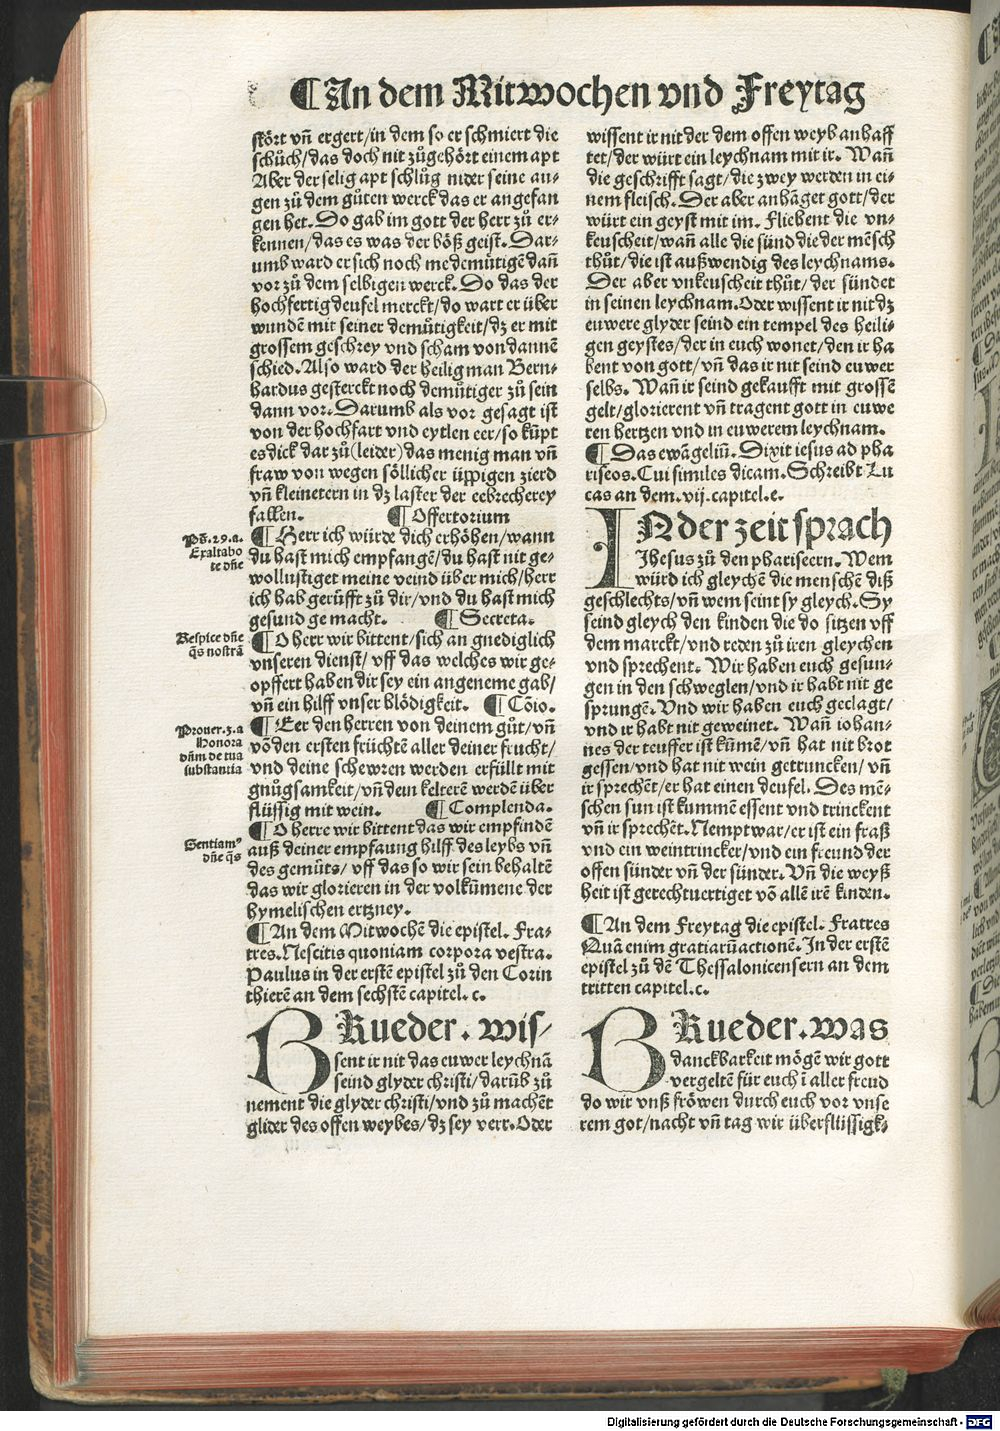 ¶ An dem Mitwochen vnd Freytag
stört vñ ergert/in dem so er schmiert die
schůch/das doch nit zůgehört einem apt
Aber der selig apt schlůg nider seine au-
gen zů dem gůten werck das er angefan
gen het. Do gab im gott der herr zů er-
kennen/das es was der böß geist. Dar-
umb ward er sich noch me demůtigē dañ
vor zů dem selbigen werck. Do das der
hochfertig deufel merckt/do wart er über
wundē mit seiner demůtigkeit/dz er mit
grossem geschrey vnd scham von dannē
schied. Also ward der heilig man Bern-
hardus gesterckt noch demůtiger zů sein
dann vor. Darumb als vor gesagt ist
von der hochfart vnd eytlen eer/so kūpt
es dick dar zů(leider)das menig man vñ
fraw von wegen söllicher üppigen zierd
vñ kleinetern in dz laster der eebrecherey
fallen. ¶ Offertorium
Ps. 29.a.
Exaltabo
te dñe
¶ Herr ich würde dich erhöhen/wann
du hast mich empfangē/du hast nit ge-
wollustiget meine veind über mich/herr
ich hab gerüfft zů dir/vnd du hast mich
gesund ge macht. ¶ Secreta.
Respice dñe
q̄s nostrā
¶ O herr wir bittent/sich an gnediglich
vnseren dienst/ vff das welches wir ge-
opffert haben dir sey ein angeneme gab/
vñ ein hilff vnser blödigkeit. ¶ Cōio.
Prouer.3.a
Honora
dñm de tua
substantia
¶ Eer den herren von deinem gůt/vñ
vō den ersten früchtē aller deiner frucht/
vnd deine schewren werden erfüllt mit
gnůgsamkeit/vñ dein kelterē werdē über
flüssig mit wein. ¶ Complenda.
Sentiam⁹
dñe q̄s
¶ O herre wir bittent das wir empfindē
auß deiner empfaung hilff des leybs vñ
des gemůts/ vff das so wir sein behaltē
das wir glorieren in der volkūmene der
hymelischen ertzney.
¶ An dem Mitwochē die epistel. Fra-
tres. Nescitis quoniam corpora vestra.
Paulus in der erstē epistel zů den Corin
thierē an dem sechstē capitel. c.
BRueder. wis-
sent ir nit das euwer leychnā
seind glyder christi/darūb zů
nement die glyder christi/vnd zů machēt
glider des offen weybes/dz sey verr. Oder
wissent ir nit der dem offen weyb anhaff
tet/der würt ein leychnam mit ir. Wañ
die geschrifft sagt/die zwey werden in ei-
nem fleisch. Der aber anhāget gott/der
würt ein geyst mit im. Fliehent die vn-
keuscheit/wañ alle die sünd die der mēsch
thůt/die ist außwendig des leychnams.
Der aber vnkeuscheit thůt/der sündet
in seinen leychnam. Oder wissent ir nit dz
euwere glyder seind ein tempel des heili-
gen geystes/der in euch wonet/den ir ha
bent von gott/vñ das ir nit seind euwer
selbs. Wañ ir seind gekaufft mit grossē
gelt/glorierent vñ tragent gott in euwe
ren hertzen vnd in euwerem leychnam.
¶ Das ewāgeliū. Dixit iesus ad pha
riseos. Cui similes dicam. Schreibt Lu
cas an dem .vij. capitel.e.
IN der zeit sprach
Jhesus zů den phariseern. Wem
würd ich gleychē die menschē diß
geschlechts/vñ wem seint sy gleych. Sy
seind gleych den kinden die do sitzen vff
dem marckt/vnd reden zů iren gleychen
vnd sprechent. Wir haben euch gesun-
gen in den schweglen/vnd ir habt nit ge
sprungē. Vnd wir haben euch geclagt/
vnd ir habt nit geweinet. Wañ iohan-
nes der teuffer ist kūmē/vñ hat nit brot
gessen/vnd hat nit wein getruncken/ vñ
ir sprechēt/er hat einen deufel. Des mē-
schen sun ist kummē essent vnd trinckent
vñ ir sprechēt. Nempt war/er ist ein fraß
vnd ein weintrincker/vnd ein freund der
offen sünder vñ der sünder. Vñ die weyß
heit ist gerechtuertiget vō allē irē kinden.
¶ An dem Freytag die epistel. Fratres
Quā enim gratiarū actionē. In der erstē
epistel zů dē Thessalonicensern an dem
tritten capitel.c.
BRueder. was
danckbarkeit mögē wir gott
vergeltē für euch ī aller freud
do wir vnß fröwen durch euch vor vnse
rem got/nacht vñ tag wir überflüssigk-
Digitalisierung gefördert durch die Deutsche Forschungsgemeinschaft - DFG